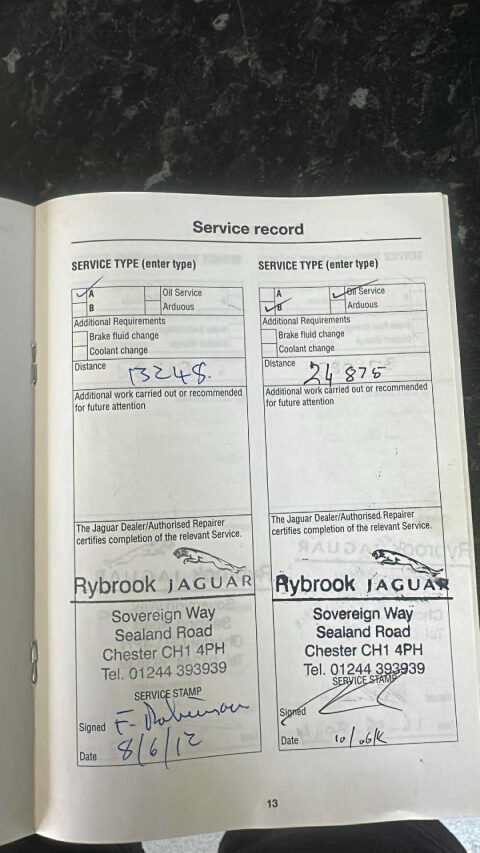 Service record
SERVICE TYPE (enter type)
A Oil Service
B Arduous
Additional Requirements
Brake fluid change
Coolant change
Distance
13248.
Additional work carried out or recommended
for future attention
The Jaguar Dealer/Authorised Repairer
certifies completion of the relevant Service.
Rybrook JAGUAR
Sovereign Way
Sealand Road
Chester CH1 4PH
Tel. 01244 393939
SERVICE STAMP
Signed
Date 8/6/12
SERVICE TYPE (enter type)
A Oil Service
B Arduous
Additional Requirements
Brake fluid change
Coolant change
Distance
24 875
Additional work carried out or recommended
for future attention
The Jaguar Dealer/Authorised Repairer
certifies completion of the relevant Service.
Rybrook JAGUAR
Sovereign Way
Sealand Road
Chester CH1 4PH
Tel. 01244 393939
SERVICE STAMP
Signed
Date
13